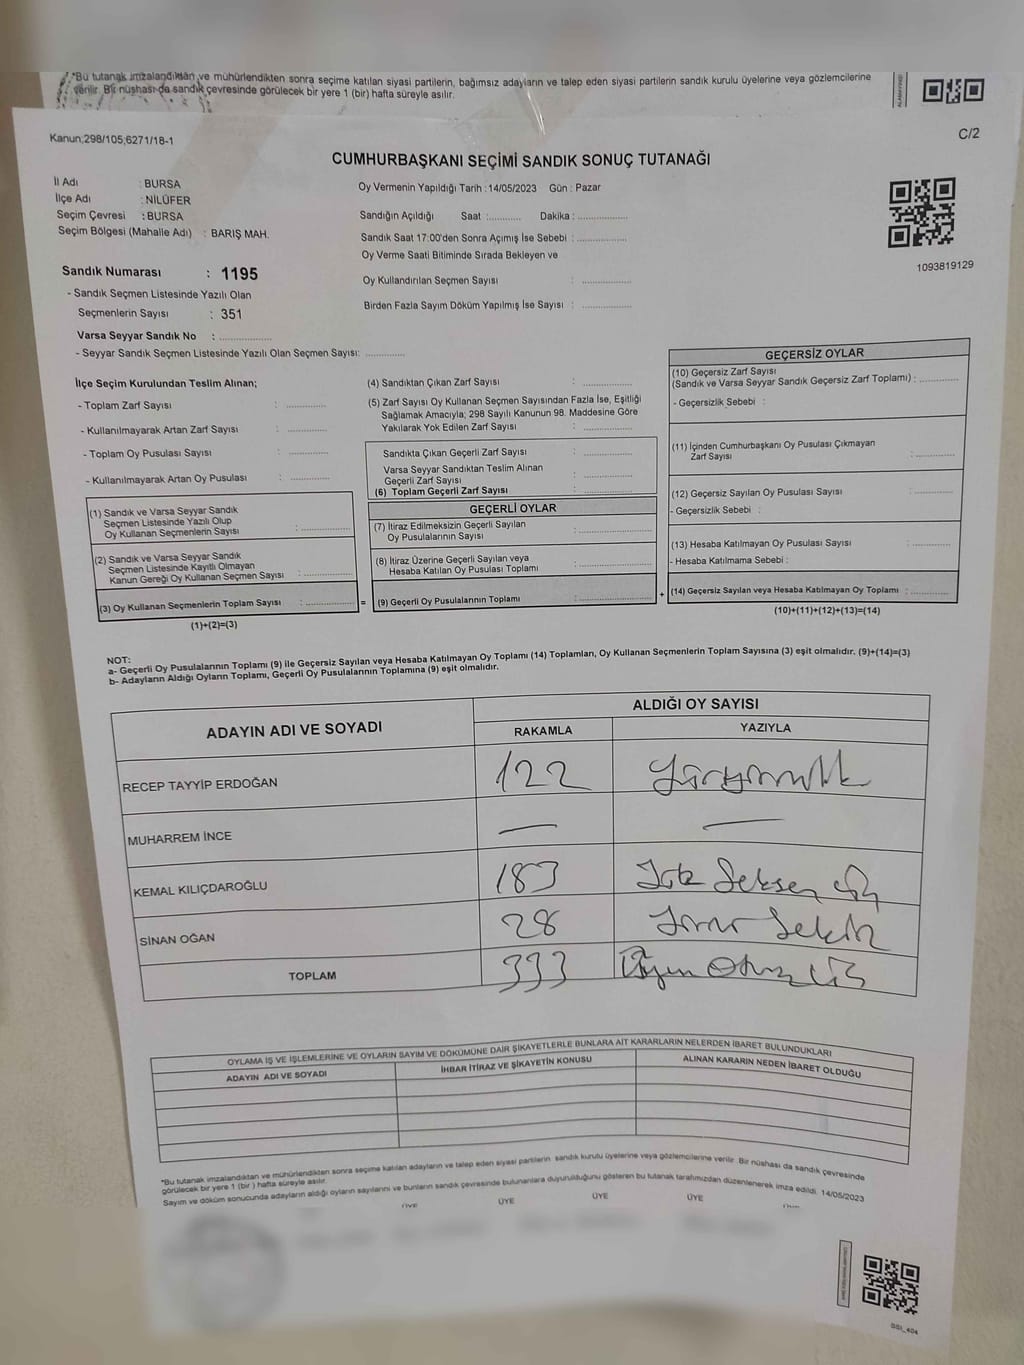 *Bu tutanak imzalandıktan ve mühürlendikten sonra seçime katılan siyasi partilerin, bağımsız adayların ve talep eden siyasi partilerin sandık kurulu üyelerine veya gözlemcilerine
verilir. Bir nüshası da sandık çevresinde görülecek bir yere 1 (bir) hafta süreyle asılır.
Kanun;298/105;6271/18-1
C/2
CUMHURBAŞKANI SEÇİMİ SANDIK SONUÇ TUTANAĞI
İl Adı : BURSA
İlçe Adı : NİLÜFER
Seçim Çevresi : BURSA
Seçim Bölgesi (Mahalle Adı) : BARIŞ MAH.
Oy Vermenin Yapıldığı Tarih : 14/05/2023 Gün : Pazar
Sandığın Açıldığı Saat :........... Dakika :..................
Sandık Saat 17:00'den Sonra Açımış İse Sebebi :..................
Oy Verme Saati Bitiminde Sırada Bekleyen ve
Oy Kullandırılan Seçmen Sayısı : ..................
Birden Fazla Sayım Döküm Yapılmış İse Sayısı : ..................
1093819129
Sandık Numarası : 1195
- Sandık Seçmen Listesinde Yazılı Olan
Seçmenlerin Sayısı : 351
Varsa Seyyar Sandık No : ..................
- Seyyar Sandık Seçmen Listesinde Yazılı Olan Seçmen Sayısı: ..............
İlçe Seçim Kurulundan Teslim Alınan;
- Toplam Zarf Sayısı : ..............
- Kullanılmayarak Artan Zarf Sayısı : ..............
- Toplam Oy Pusulası Sayısı : ..............
- Kullanılmayarak Artan Oy Pusulası : ..............
(1) Sandık ve Varsa Seyyar Sandık
Seçmen Listesinde Yazılı Olup
Oy Kullanan Seçmenlerin Sayısı : ..................
(2) Sandık ve Varsa Seyyar Sandık
Seçmen Listesinde Kayıtlı Olmayan
Kanun Gereği Oy Kullanan Seçmen Sayısı : ..................
(3) Oy Kullanan Seçmenlerin Toplam Sayısı : ..................
(1)+(2)=(3)
(4) Sandıktan Çıkan Zarf Sayısı : ..................
(5) Zarf Sayısı Oy Kullanan Seçmen Sayısından Fazla İse, Eşitliği
Sağlamak Amacıyla; 298 Sayılı Kanunun 98. Maddesine Göre
Yakılarak Yok Edilen Zarf Sayısı : ..................
Sandıkta Çıkan Geçerli Zarf Sayısı : ..................
Varsa Seyyar Sandıktan Teslim Alınan
Geçerli Zarf Sayısı : ..................
(6) Toplam Geçerli Zarf Sayısı : ..................
GEÇERLİ OYLAR
(7) İtiraz Edilmeksizin Geçerli Sayılan
Oy Pusulalarının Sayısı : ..................
(8) İtiraz Üzerine Geçerli Sayılan veya
Hesaba Katılan Oy Pusulası Toplamı : ..................
= (9) Geçerli Oy Pusulalarının Toplamı : ..................
GEÇERSİZ OYLAR
(10) Geçersiz Zarf Sayısı
(Sandık ve Varsa Seyyar Sandık Geçersiz Zarf Toplamı) : ..............
- Geçersizlik Sebebi :
(11) İçinden Cumhurbaşkanı Oy Pusulası Çıkmayan
Zarf Sayısı : ..............
(12) Geçersiz Sayılan Oy Pusulası Sayısı : ..............
- Geçersizlik Sebebi :
(13) Hesaba Katılmayan Oy Pusulası Sayısı : ..............
- Hesaba Katılmama Sebebi :
+ (14) Geçersiz Sayılan veya Hesaba Katılmayan Oy Toplamı : ..............
(10)+(11)+(12)+(13)=(14)
NOT:
a- Geçerli Oy Pusulalarının Toplamı (9) ile Geçersiz Sayılan veya Hesaba Katılmayan Oy Toplamı (14) Toplamları, Oy Kullanan Seçmenlerin Toplam Sayısına (3) eşit olmalıdır. (9)+(14)=(3)
b- Adayların Aldığı Oyların Toplamı, Geçerli Oy Pusulalarının Toplamına (9) eşit olmalıdır.
ADAYIN ADI VE SOYADI
ALDIĞI OY SAYISI
RAKAMLA YAZIYLA
RECEP TAYYİP ERDOĞAN 122
MUHARREM İNCE — —
KEMAL KILIÇDAROĞLU 183 Seksen
SİNAN OĞAN 28 Sekiz
TOPLAM 333 Otuz
OYLAMA İŞ VE İŞLEMLERİNE VE OYLARIN SAYIM VE DÖKÜMÜNE DAİR ŞİKAYETLERLE BUNLARA AİT KARARLARIN NELERDEN İBARET BULUNDUKLARI
ADAYIN ADI VE SOYADI İHBAR İTİRAZ VE ŞİKAYETİN KONUSU ALINAN KARARIN NEDEN İBARET OLDUĞU
*Bu tutanak imzalandıktan ve mühürlendikten sonra seçime katılan adayların ve talep eden siyasi partilerin sandık kurulu üyelerine veya gözlemcilerine verilir. Bir nüshası da sandık çevresinde
görülecek bir yere 1 (bir ) hafta süreyle asılır.
Sayım ve döküm sonucunda adayların aldığı oyların sayılarını ve bunların sandık çevresinde bulunanlara duyurulduğunu gösteren bu tutanak tarafımızdan düzenlenerek imza edildi. 14/05/2023
ÜYE ÜYE ÜYE ÜYE